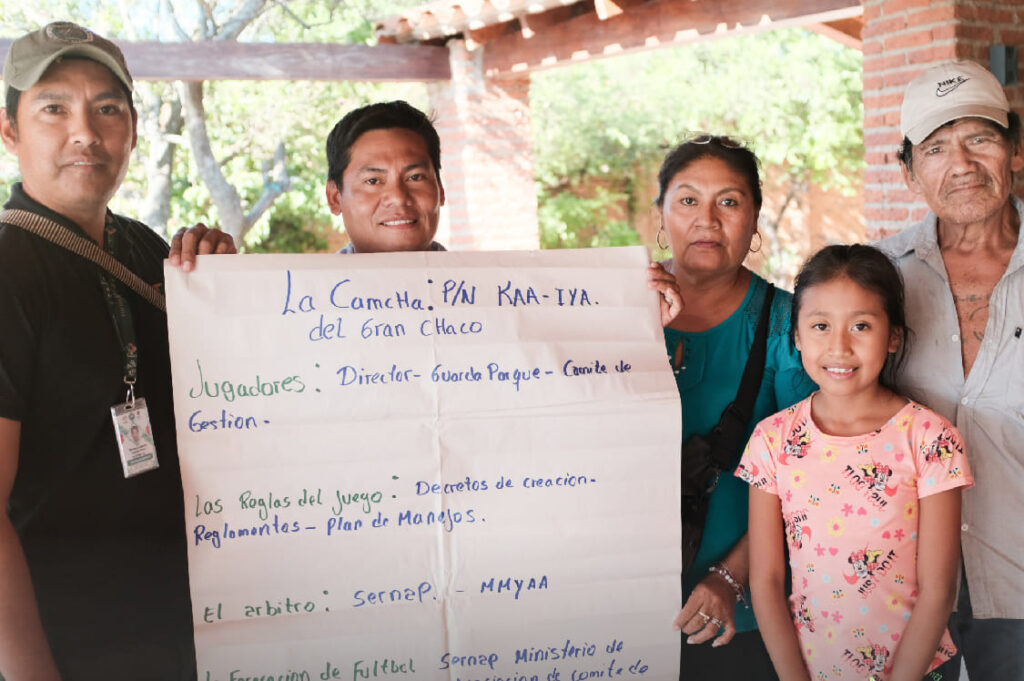 La Camcha: P/N KAA-IYA.
del Gran CHaco
Jugadores: Director- Guarda Parque- Comite de
Gestion.
Las Reglas del Juego: Decretos de creacion-
Reglamentas- Plan de Manejos.
El arbitro: Sernap. - MMYAA
Formacion de Fultbol Sernap Ministerio de
de comite de
NIKE